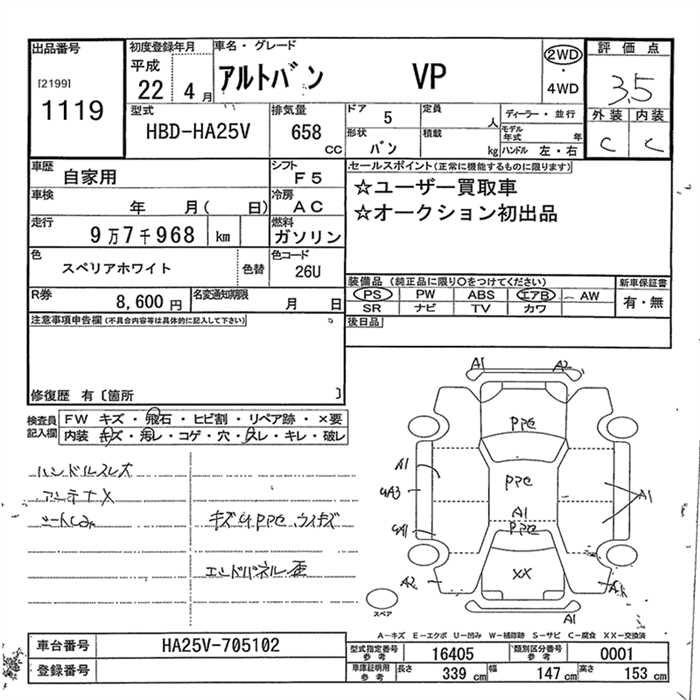 出品番号
[2199]
1119
初度登録年月
平成
22 4月
車名・グレード
アルトバン VP
2WD
・
4WD
評価点
3.5
外装 内装
C C
型式
HBD-HA25V
排気量
658 cc
ドア 5
定員 人
形状 バン
積載 kg
ディーラー・並行
モデル年式 年
ハンドル 左・右
車歴
自家用
シフト
F5
車検
年 月( 日)
冷房
AC
走行
9万7千968 km
燃料
ガソリン
色
スペリアホワイト
色替
色コード
26U
R券 8,600円
名変通知期限
月 日
セールスポイント(正常に機能するものに限ります)
☆ユーザー買取車
☆オークション初出品
装備品 (純正品に限り○をつけてください)
PS PW ABS エアB AW
SR ナビ TV カワ
新車保証書
有・無
後日品
注意事項申告欄(不具合内容等は具体的に記入して下さい)
修復歴 有〔箇所 〕
検査員
記入欄
FW キズ・飛石・ヒビ割・リペア跡・×要
内装 キズ・汚レ・コゲ・穴・スレ・キレ・破レ
ハンドルスレ大
アンテナX
キズUPPC ウイキズ
エンドパネル歪
A1 A2
PPC
A1
PPC
A1
A1
PPC
XX
A2
A1
スペア
A-キズ E-エクボ U-凹み W-補修跡 S-サビ C-腐食 XX-交換済
車台番号 HA25V-705102
登録番号
型式指定番号
参考
16405
類別区分番号
参考
0001
車庫証明用
参考
長さ 339 cm 幅 147 cm 高さ 153 cm